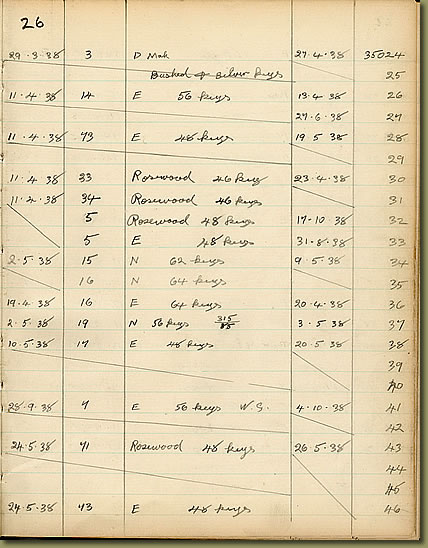 26
29.3.38 3 D Mah 27.4.38 35024
Bushed & Silver keys 25
11.4.38 14 E 56 keys 13.4.38 26
27.6.38 27
11.4.38 43 E 48 keys 19.5.38 28
29
11.4.38 33 Rosewood 46 keys 23.4.38 30
11.4.38 34 Rosewood 46 keys 31
5 Rosewood 48 keys 17-10.38 32
5 E 48 keys 31.8.38 33
2.5.38 15 N 62 keys 9.5.38 34
16 N 64 keys 35
19.4.38 16 E 64 keys 20.4.38 36
2.5.38 19 N 56 keys 315/85 3.5.38 37
10.5.38 17 E 48 keys 20.5.38 38
39
40
28.9.38 7 E 56 keys W.G. 4.10.38 41
42
24.5.38 41 Rosewood 48 keys 26.5.38 43
44
45
24.5.38 43 E 48 keys 46